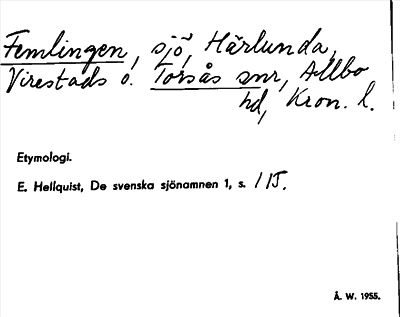 Femlingen, sjö, Härlunda,
Virestads o. Torsås snr, Allbo
hd, Kron. l.
Etymologi.
E. Hellquist, De svenska sjönamnen 1, s. 115.
Å. W. 1955.